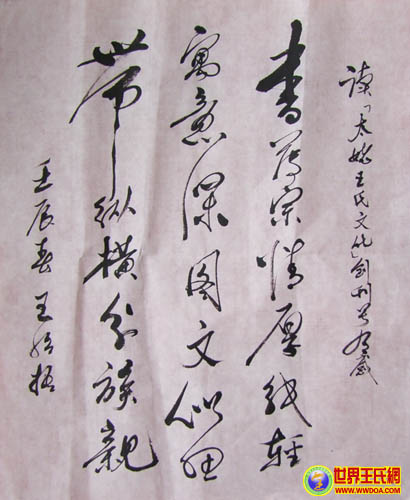 读「太姥王氏文化」创刊号有感
書薄宗情厚纸轻
寓意深图文似
带纵横分族親
壬辰春王绍据
世界王氏网
WWW.WWDOA.COM